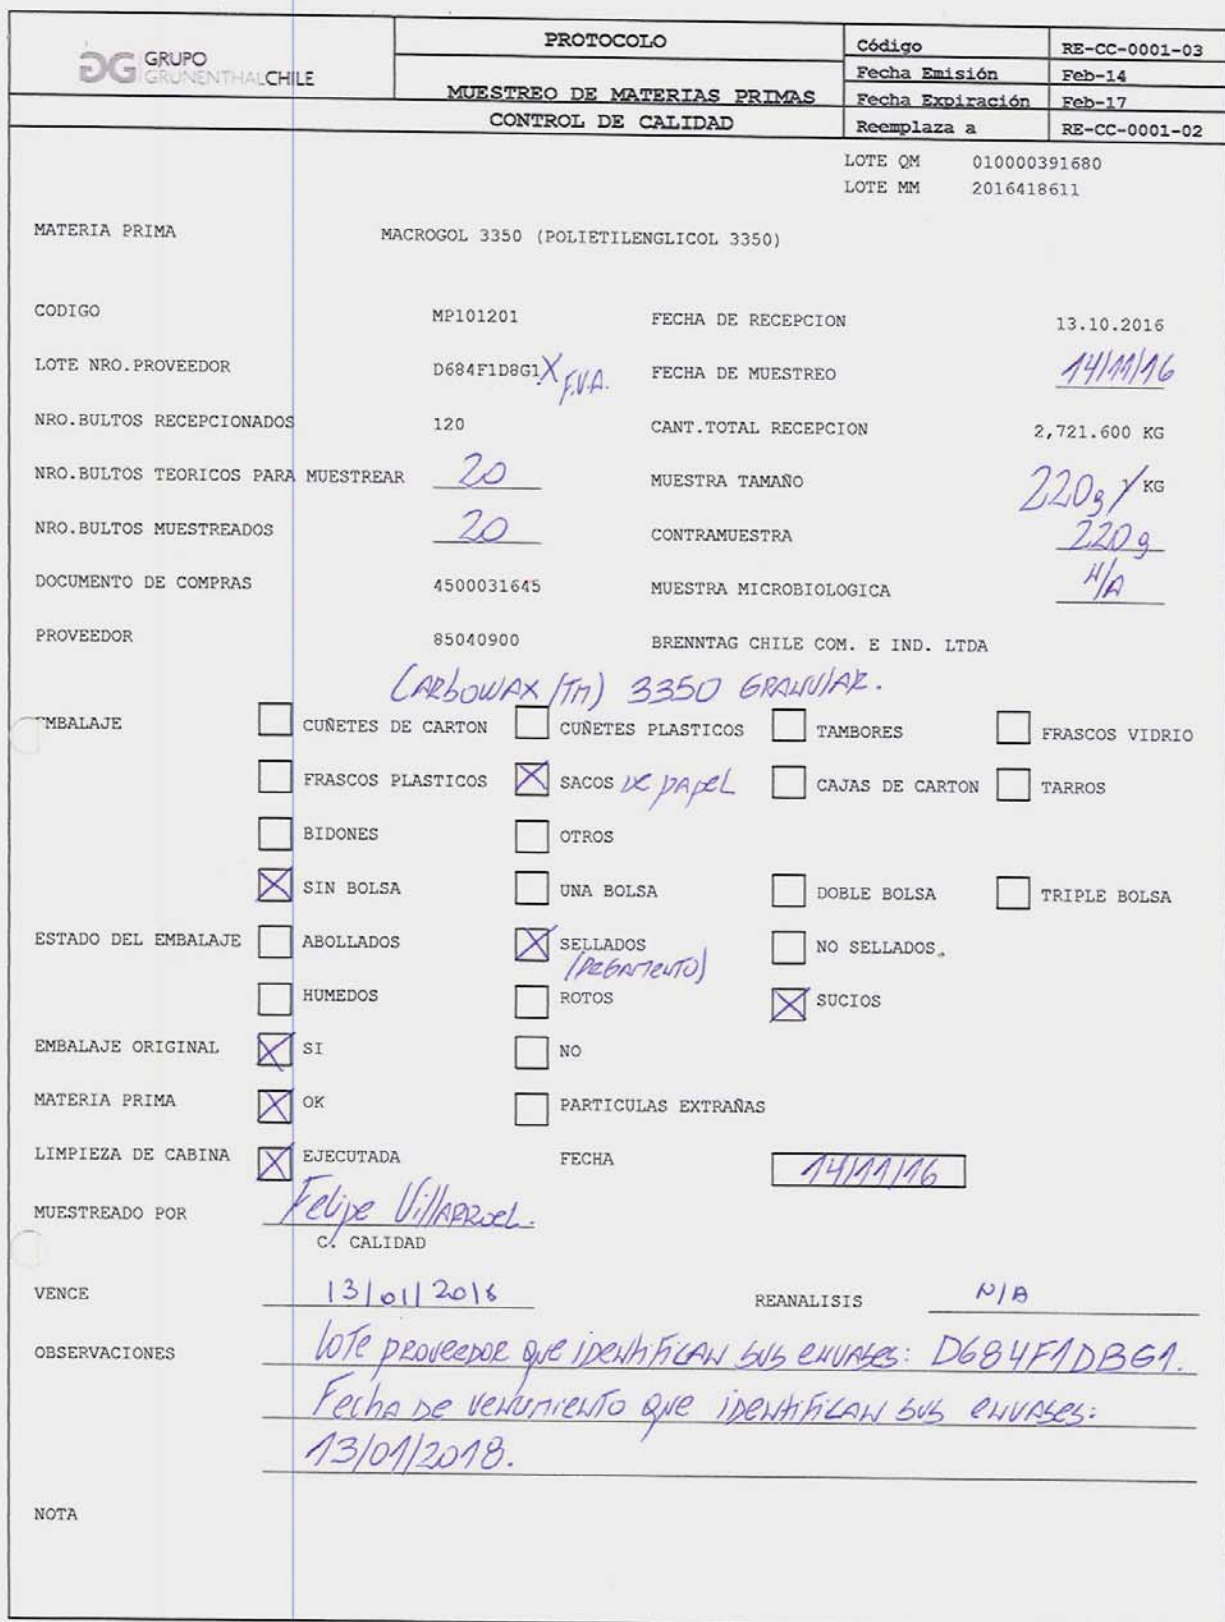 GRUPO
GRUNENTHALCHILE
PROTOCOLO
MUESTREO DE MATERIAS PRIMAS
CONTROL DE CALIDAD
Código RE-CC-0001-03
Fecha Emisión Feb-14
Fecha Expiración Feb-17
Reemplaza a RE-CC-0001-02
LOTE QM 010000391680
LOTE MM 2016418611
MATERIA PRIMA MACROGOL 3350 (POLIETILENGLICOL 3350)
CODIGO MP101201 FECHA DE RECEPCION 13.10.2016
LOTE NRO.PROVEEDOR D684F1D8G1 X F.V.A. FECHA DE MUESTREO 14/11/16
NRO.BULTOS RECEPCIONADOS 120 CANT.TOTAL RECEPCION 2,721.600 KG
NRO.BULTOS TEORICOS PARA MUESTREAR 20 MUESTRA TAMAÑO 220g / KG
NRO.BULTOS MUESTREADOS 20 CONTRAMUESTRA 220g
DOCUMENTO DE COMPRAS 4500031645 MUESTRA MICROBIOLOGICA N/A
PROVEEDOR 85040900 BRENNTAG CHILE COM. E IND. LTDA
CARBOWAX (TM) 3350 GRANULAR.
EMBALAJE CUÑETES DE CARTON CUÑETES PLASTICOS TAMBORES FRASCOS VIDRIO
FRASCOS PLASTICOS X SACOS DE PAPEL CAJAS DE CARTON TARROS
BIDONES OTROS
X SIN BOLSA UNA BOLSA DOBLE BOLSA TRIPLE BOLSA
ESTADO DEL EMBALAJE ABOLLADOS X SELLADOS NO SELLADOS.
(PEGAMENTO)
HUMEDOS ROTOS X SUCIOS
EMBALAJE ORIGINAL X SI NO
MATERIA PRIMA X OK PARTICULAS EXTRAÑAS
LIMPIEZA DE CABINA X EJECUTADA FECHA 14/11/16
MUESTREADO POR Felipe Villarroel.
C. CALIDAD
VENCE 13/01/2018 REANALISIS N/A
OBSERVACIONES Lote proveedor que identifican sus envases: D684F1DBG1.
Fecha de vencimiento que identifican sus envases:
13/01/2018.
NOTA